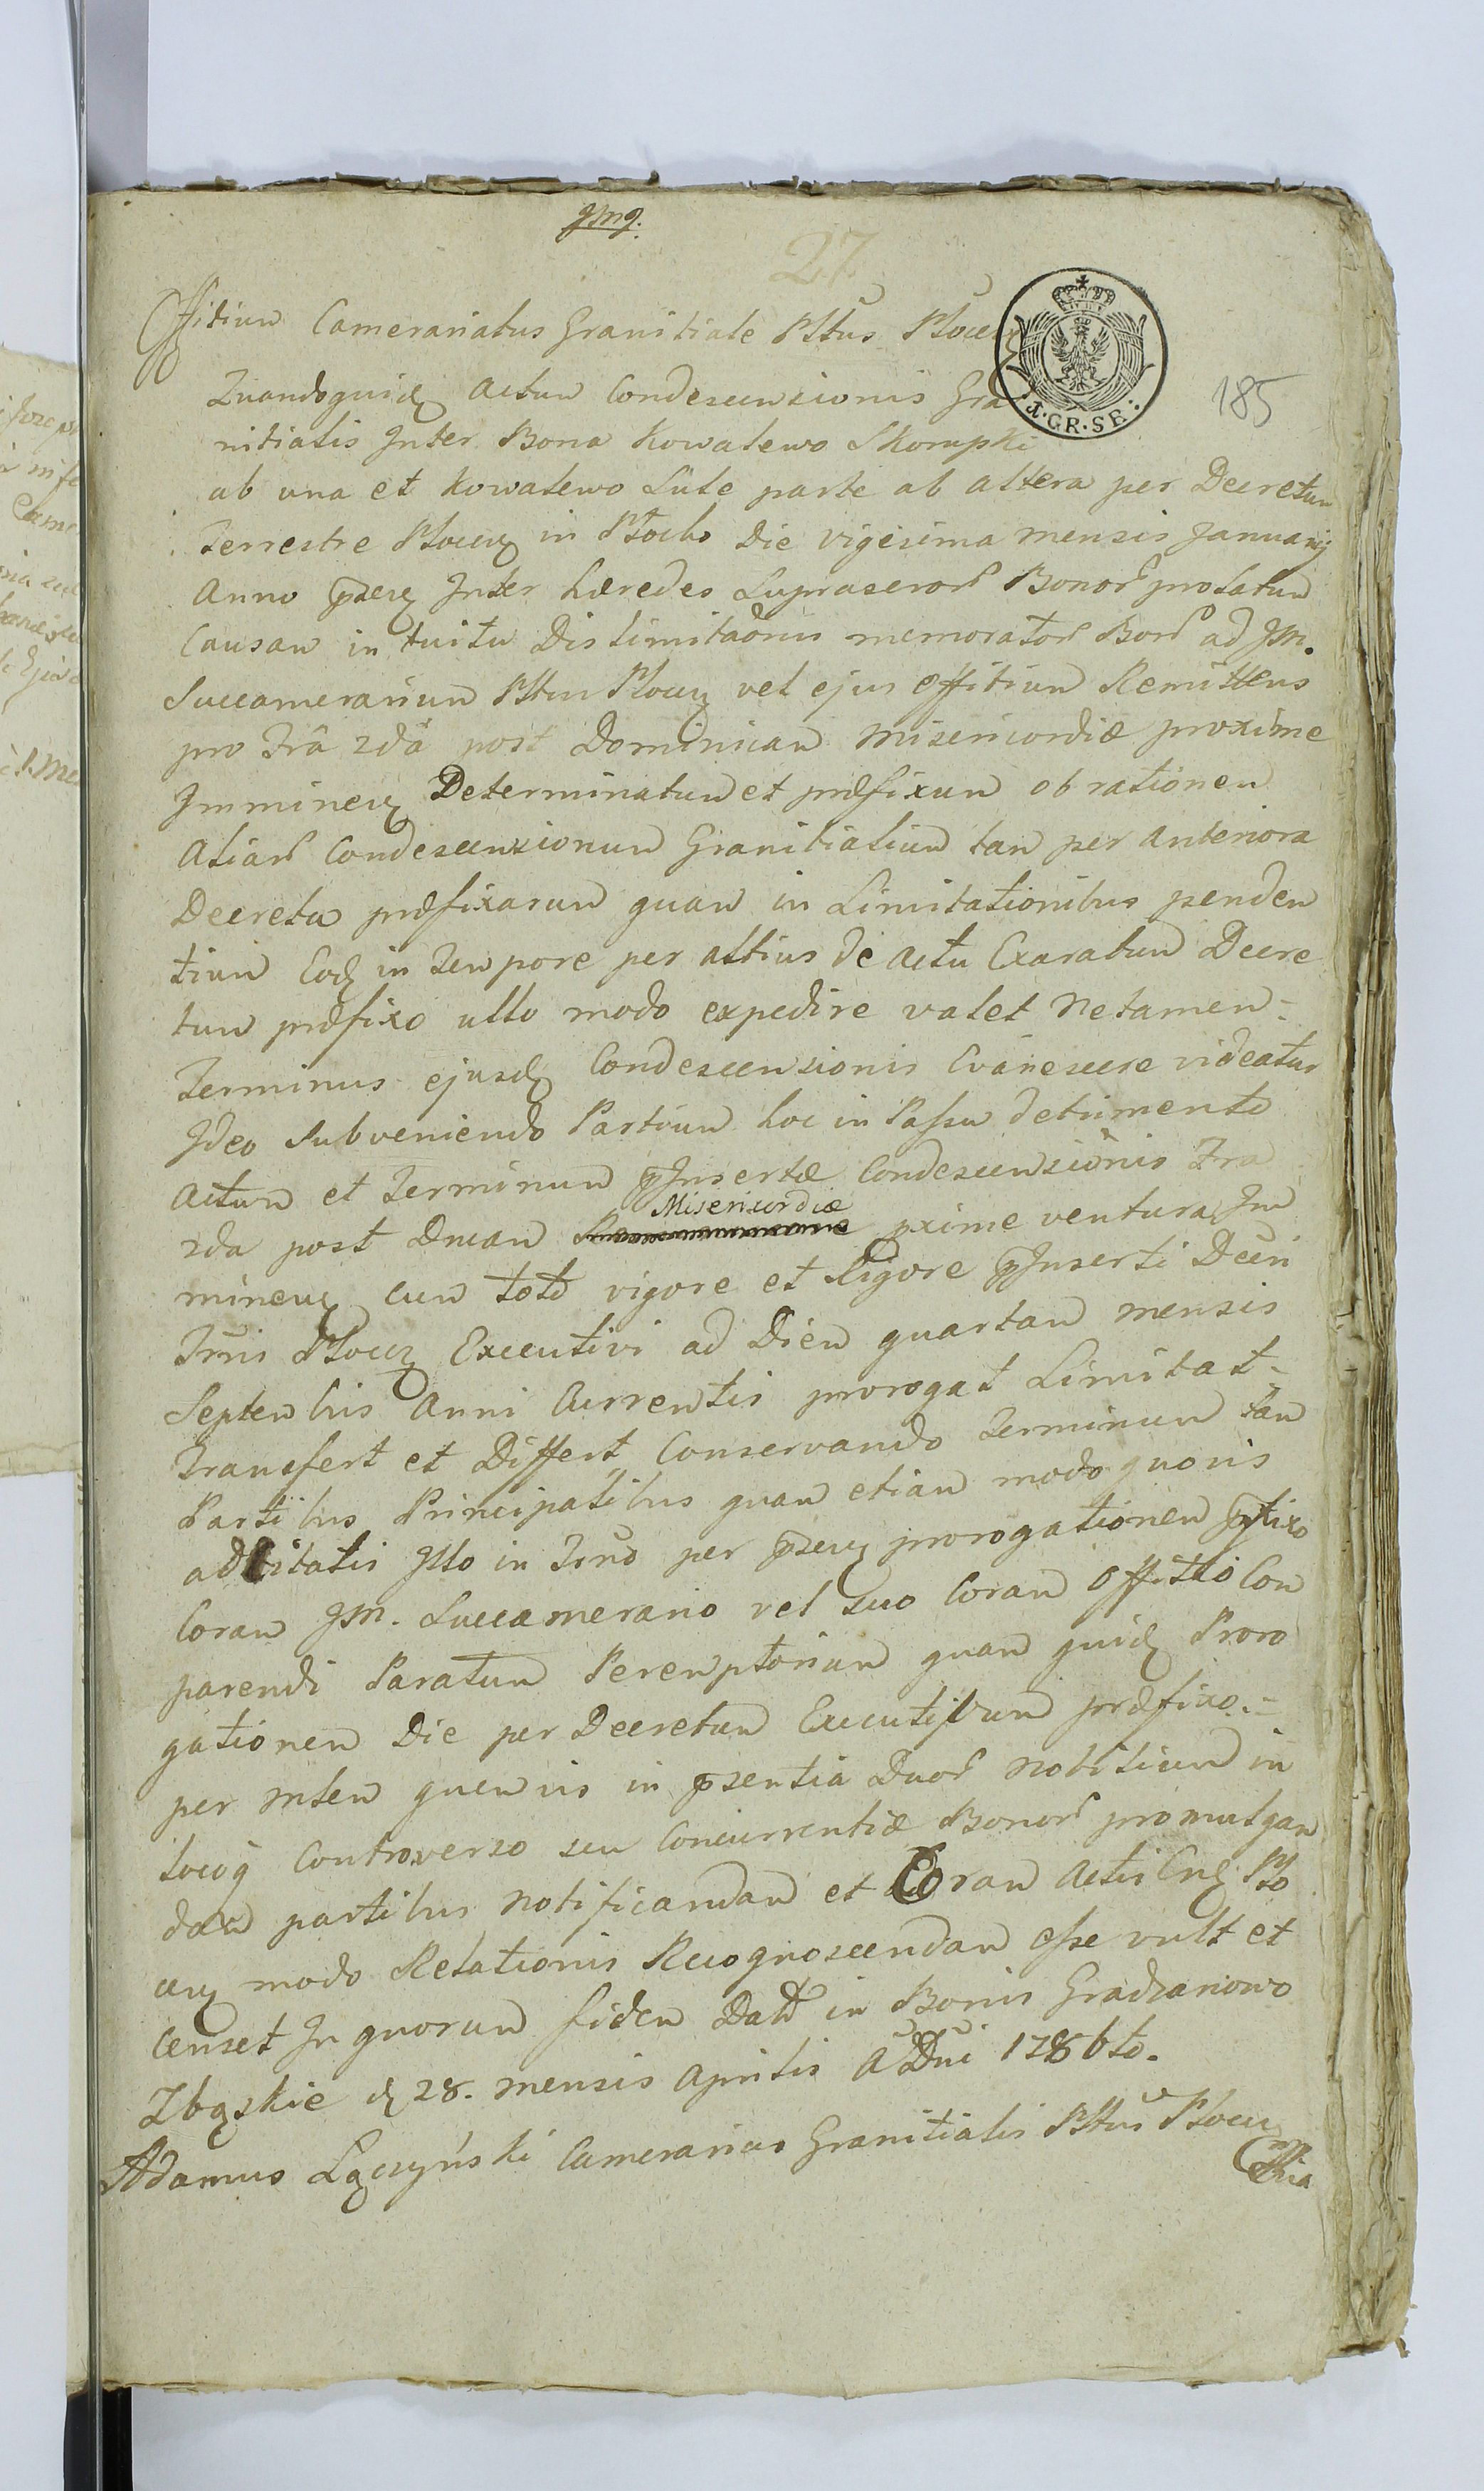 27
185
I.GR.SR.
Offitium Camerariatus Granitiale Pttus Plocen
Quandoquid actum Condescensionis Gra
nitialis Inter Bona Kowalewo Skorupki
ab una et Kowalewo parte ab altera per Decretum
Terrestre Plocen in Plocko Die vigesima mensis Januarij
Anno Inter hæredes Suprascror Bonor prolatum
Causam in tuitu Dislimitaonis memorator Bor ad JM.
Succamerarium Pttus Plocen vel ejus offitium Remittens
pro Fra 2da post Dominicam Misericordiæ proxime
Imminen Determinatum et præfixum ob rationem
Aliar Condescensionum Granitialium tam per anteriora
Decreta præfixarum quam in Limitationibus penden
tium Eod in Tempore per altius de actu Exaratum Decre
tum præfixo ullo modo expedire valet Netamen=
Terminus ejusd Condescensionis Evanescere videatur
Ideo Subveniendo Partium hoc in Passu detrimento
actum et Terminum pInsertæ Condescensionis Fra
2da post Dnicam Misericordiæ pxime ventura Im
minen cum toto vigore et Rigore pInserti Decri
Trris Plocen Executivi ad Diem quartam mensis
Septembris Anni Currentis prorogat Limitat=
Transfert et Differt Conservando Terminum tam
Partibus Principalibus quam etiam modo quovis
adcitatis Illo in Trno per psen prorogationem pfixo
Coram JM. Succamerario vel suo Coram Offitio Com
parendi Paratum Peremptorium quam quid Proro
gationem Die per Decretum Executivum præfixo.=
per Mtem quemvis in psentia Duor Nobilium in
locoq Controverso seu Concurrentiæ Bonor promulgan
dam partibus notificandam et Coram Actis Plo
cen modo Relationis Recognoscendam esse vult et
censet In quorum fidem Datt in Bonis Gradzanowo
Zbęskie d 28. mensis Aprilis A Dni 1786to.
Adamus Łączyński Camerarius Granitialis Pttus Plocen